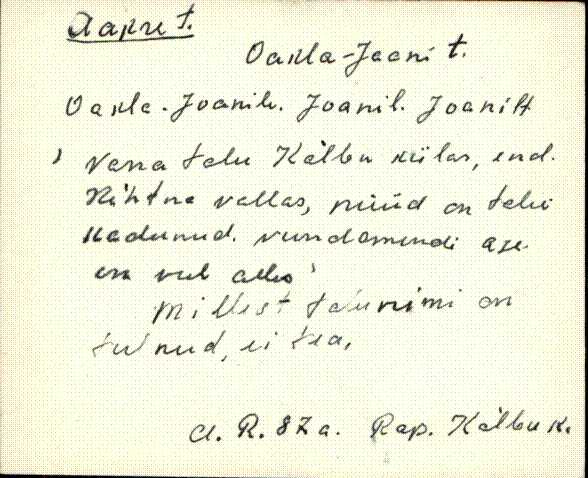 Aakre t.
Oakla-Jaani t.
Oakla-Joanil. Joanil. Joanilt
' Vana talu Kälbu külas, end.
Rihtna vallas, nüüd on talu
kadunud. vundamendi ase
on veel alles'
Millest talunimi on
tulnud, ei tea.
A. R. 87a. Rap. Kälbu k.